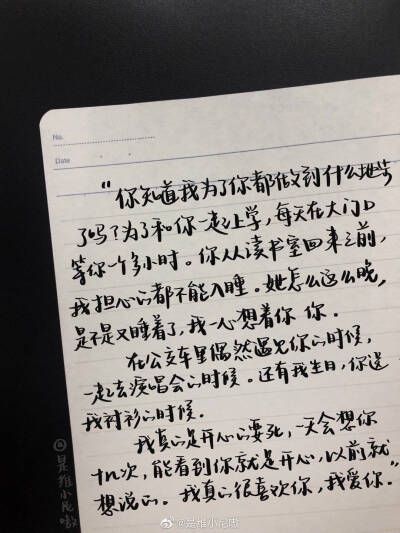 No.
Date
“你知道我为了你都做到什么地步
了吗？为了和你一起上学，每天在大门口
等你一个多小时。你从读书室回来之前，
我担心的都不能入睡。她怎么这么晚，
是不是又睡着了，我一心想着你 你．
在公交车里偶然遇见你的时候，
一起去演唱会的时候．还有我生日，你送
我衬衫的时候．
我真的是开心的要死，一天会想你
十几次，能看到你就是开心，以前就
想说的．我真的很喜欢你，我爱你．”
@是维小尼嗷
@是维小尼嗷